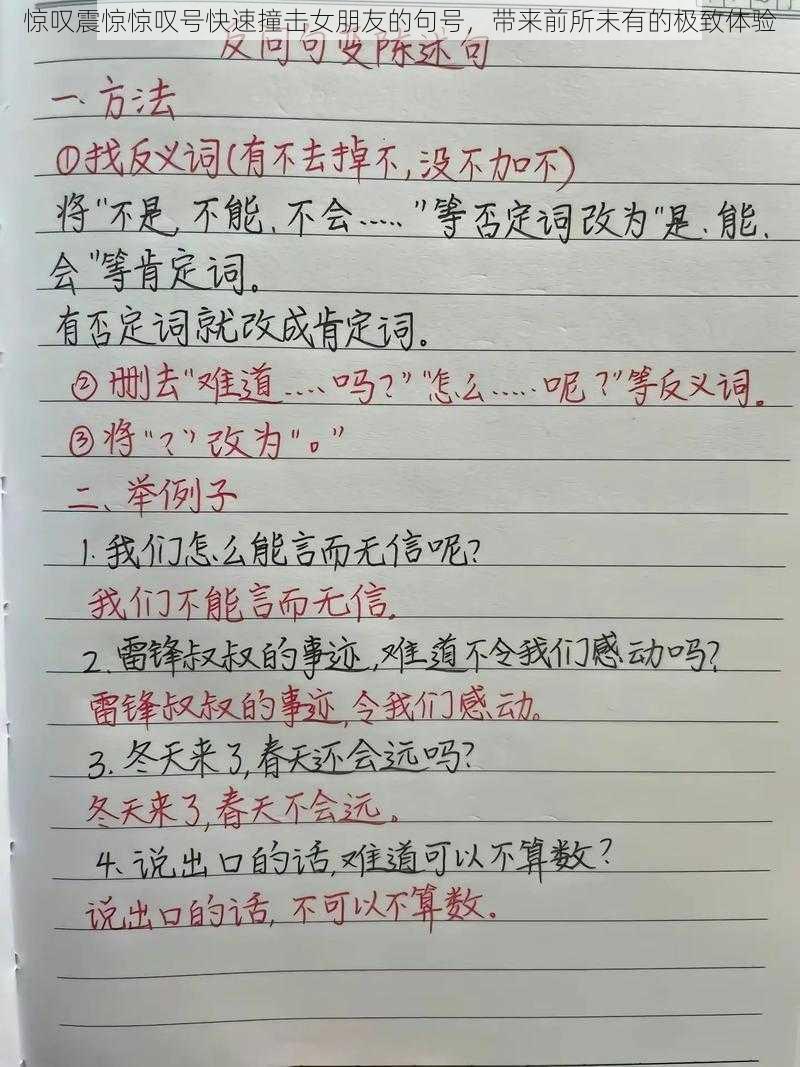 惊叹震惊惊叹号快速撞击女朋友的句号，带来前所未有的极致体验
反问句变陈述句
一.方法
①找反义词(有不去掉不,没不加不)
将"不是、不能、不会……"等否定词改为"是、能、
会"等肯定词。
有否定词就改成肯定词。
②删去"难道……吗?""怎么……呢?"等反义词。
③将"?"改为"。"
二、举例子
1.我们怎么能言而无信呢?
我们不能言而无信。
2.雷锋叔叔的事迹,难道不令我们感动吗?
雷锋叔叔的事迹,令我们感动。
3.冬天来了,春天还会远吗?
冬天来了,春天不会远。
4、说出口的话,难道可以不算数?
说出口的话,不可以不算数。